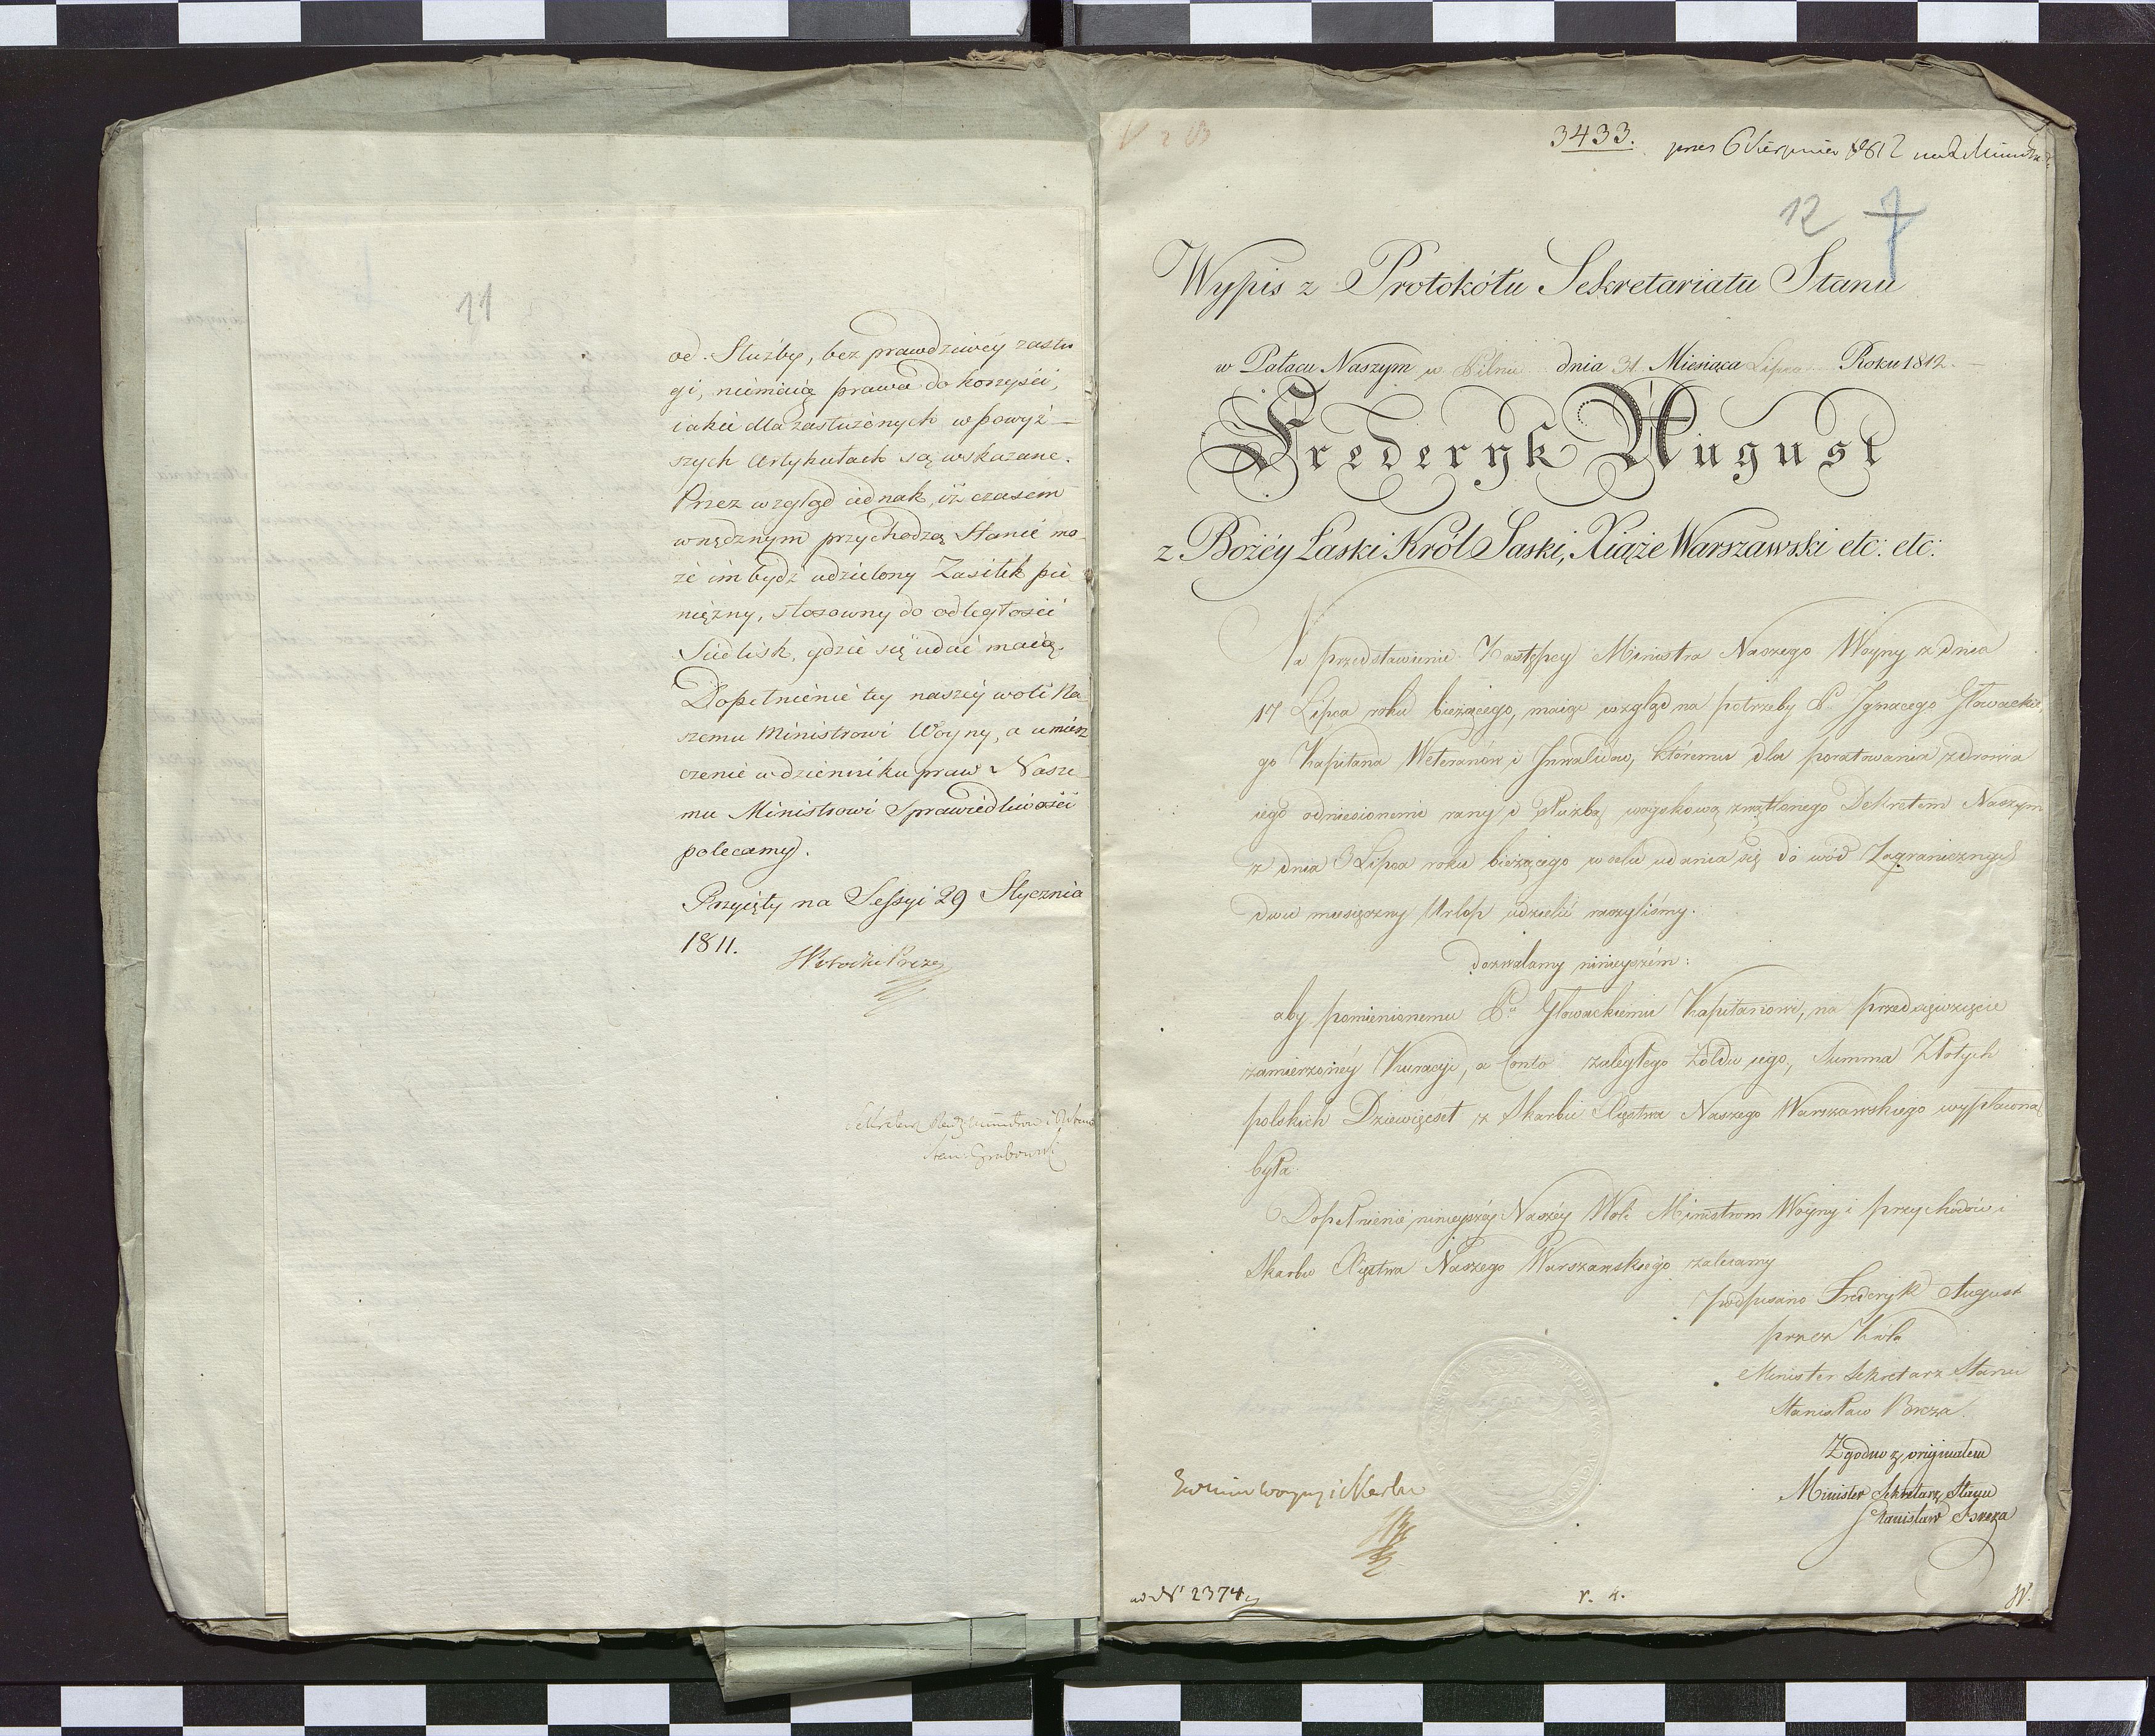 11
od. Służby, bez prawdziwéy zasłu
gi, niemaią prawa do korzyści,
iakie dla zasłużonych w powyż-
szych artykułach są wskazane.
Przez wzgląd iednak, iż czasem
w nędznym przychodzą stanie mo-
że im bydź udzielony Zasiłek pie
niężny, stosowny do odległości
Siedlisk, gdzie się udać maią.
Dopełnienie tey naszéy woli Na
szemu Ministrowi Woyny, a umiesz
czenie w dzienniku praw Nasze
mu Ministrowi Sprawiedliwości
polecamy.
Przyięty na Sessyi 29 Stycznia
1811.
Sekretarz Rady Ministrów
Grabowski
3433. pres 6 Sierpnia 1812
12 7
Wypis z Protokółu Sekretariatu Stanu
w Pałacu Naszym w Pilnitz dnia 31 Miesiąca Lipca Roku 1812.
Frederyk August
z Bożéy Łaski Król Saski, Xiąże Warszawski etc: etc:
Na przedstawienie Zastępcy Ministra Naszego Woyny z dnia
17 Lipca roku bieżącego, maiąc wzgląd na potrzeby Pa Ignacego Głowackie
go Kapitana Weteranów i Inwalidów, któremu dla poratowania zdrowia
iego odniesionemi rany i służbą woyskową zwątlonego Dekretem Naszym
z dnia 3 Lipca roku bieżącego w celu udania się do wód Zagranicznych
dwu miesięczny Urlop udzielić raczyliśmy.
dozwalamy ninieyszém:
aby pomienionemu Pu Głowackiemu Kapitanowi, na przedsięwzięcie
zamierzonéy Kuracyi, a Conto zaległego żołdu iego, Summa Złotych
polskich Dziewięćset z Skarbu Xięstwa Naszego Warszawskiego wypłacona
była.
Dopełnienie ninieyszéy Naszéy Woli Ministrom Woyny i przychodów i
Skarbu Xięstwa Naszego Warszawskiego zalecamy
podpisano Frederyk August
przez Króla
Minister Sekretarz Stanu
Stanisław Breza.
Zgodno z originałem
Minister Sekretarz Stanu
Stanisław Breza
Woyny i Skarbu
ad Nr 2374